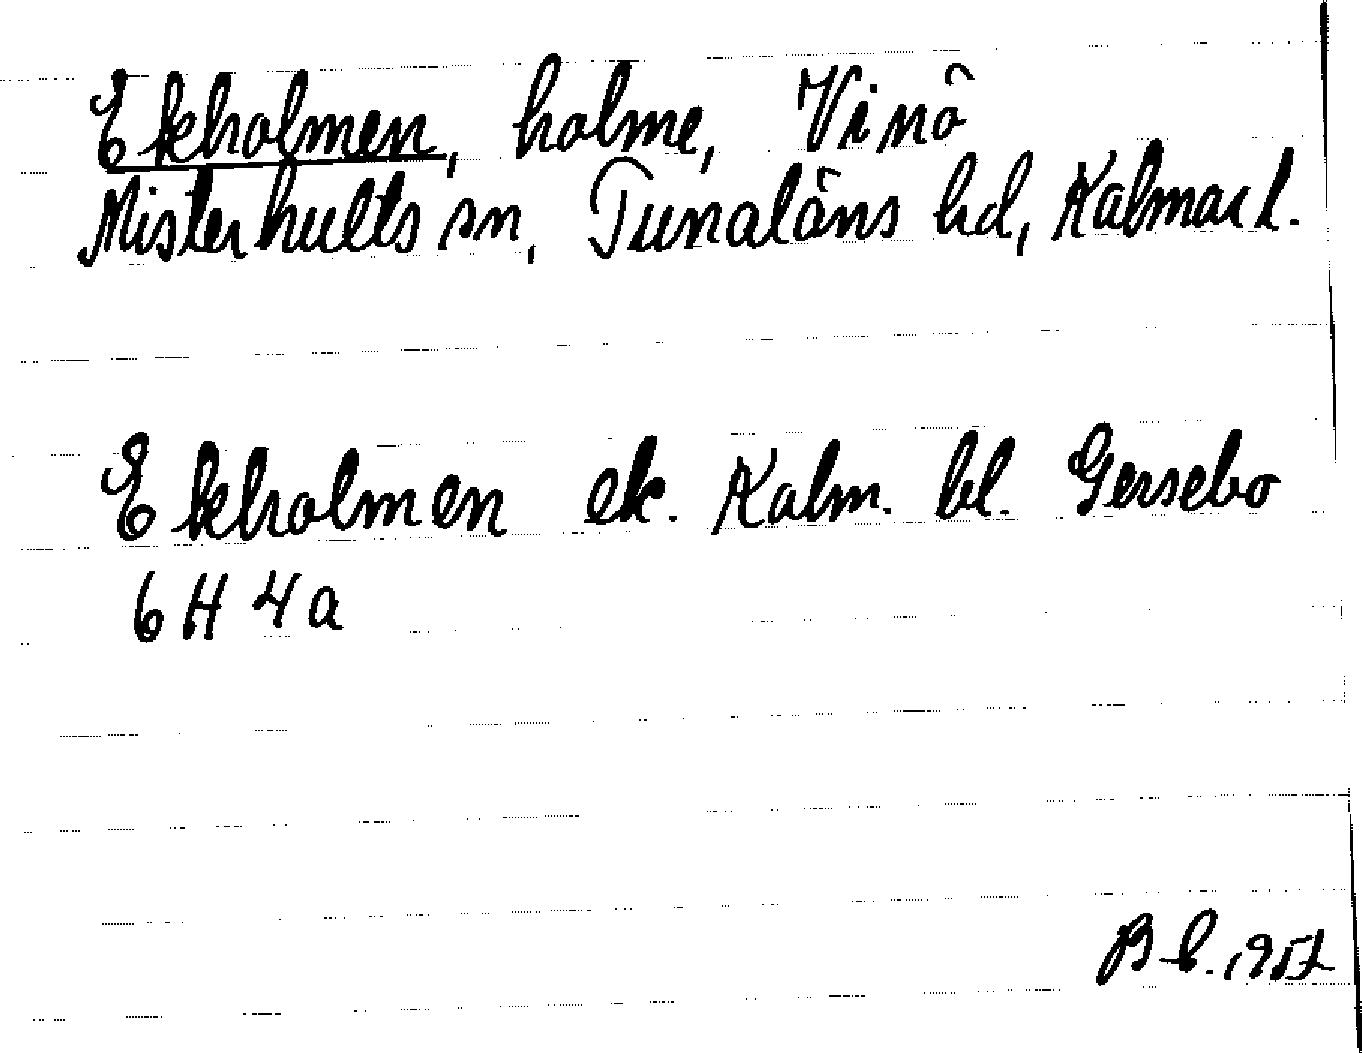 Ekholmen, holme, Vinö
Misterhults sn, Tunaläns hd, Kalmar l.
Ekholmen ek. Kalm. bl. Gersebo
6H 4a
1952